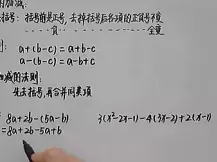 加减:
括号: 括号前是正号, 去掉括号后各项的正负号不变
负 全变
a+(b-c)=a+b-c
a-(b-c)=a-b+c
加减的法则:
先去括号, 再合并同类项
8a+2b-(5a-b) 3(x²-2x-1)-4(3x-2)+2(x-1
=8a+2b-5a+b